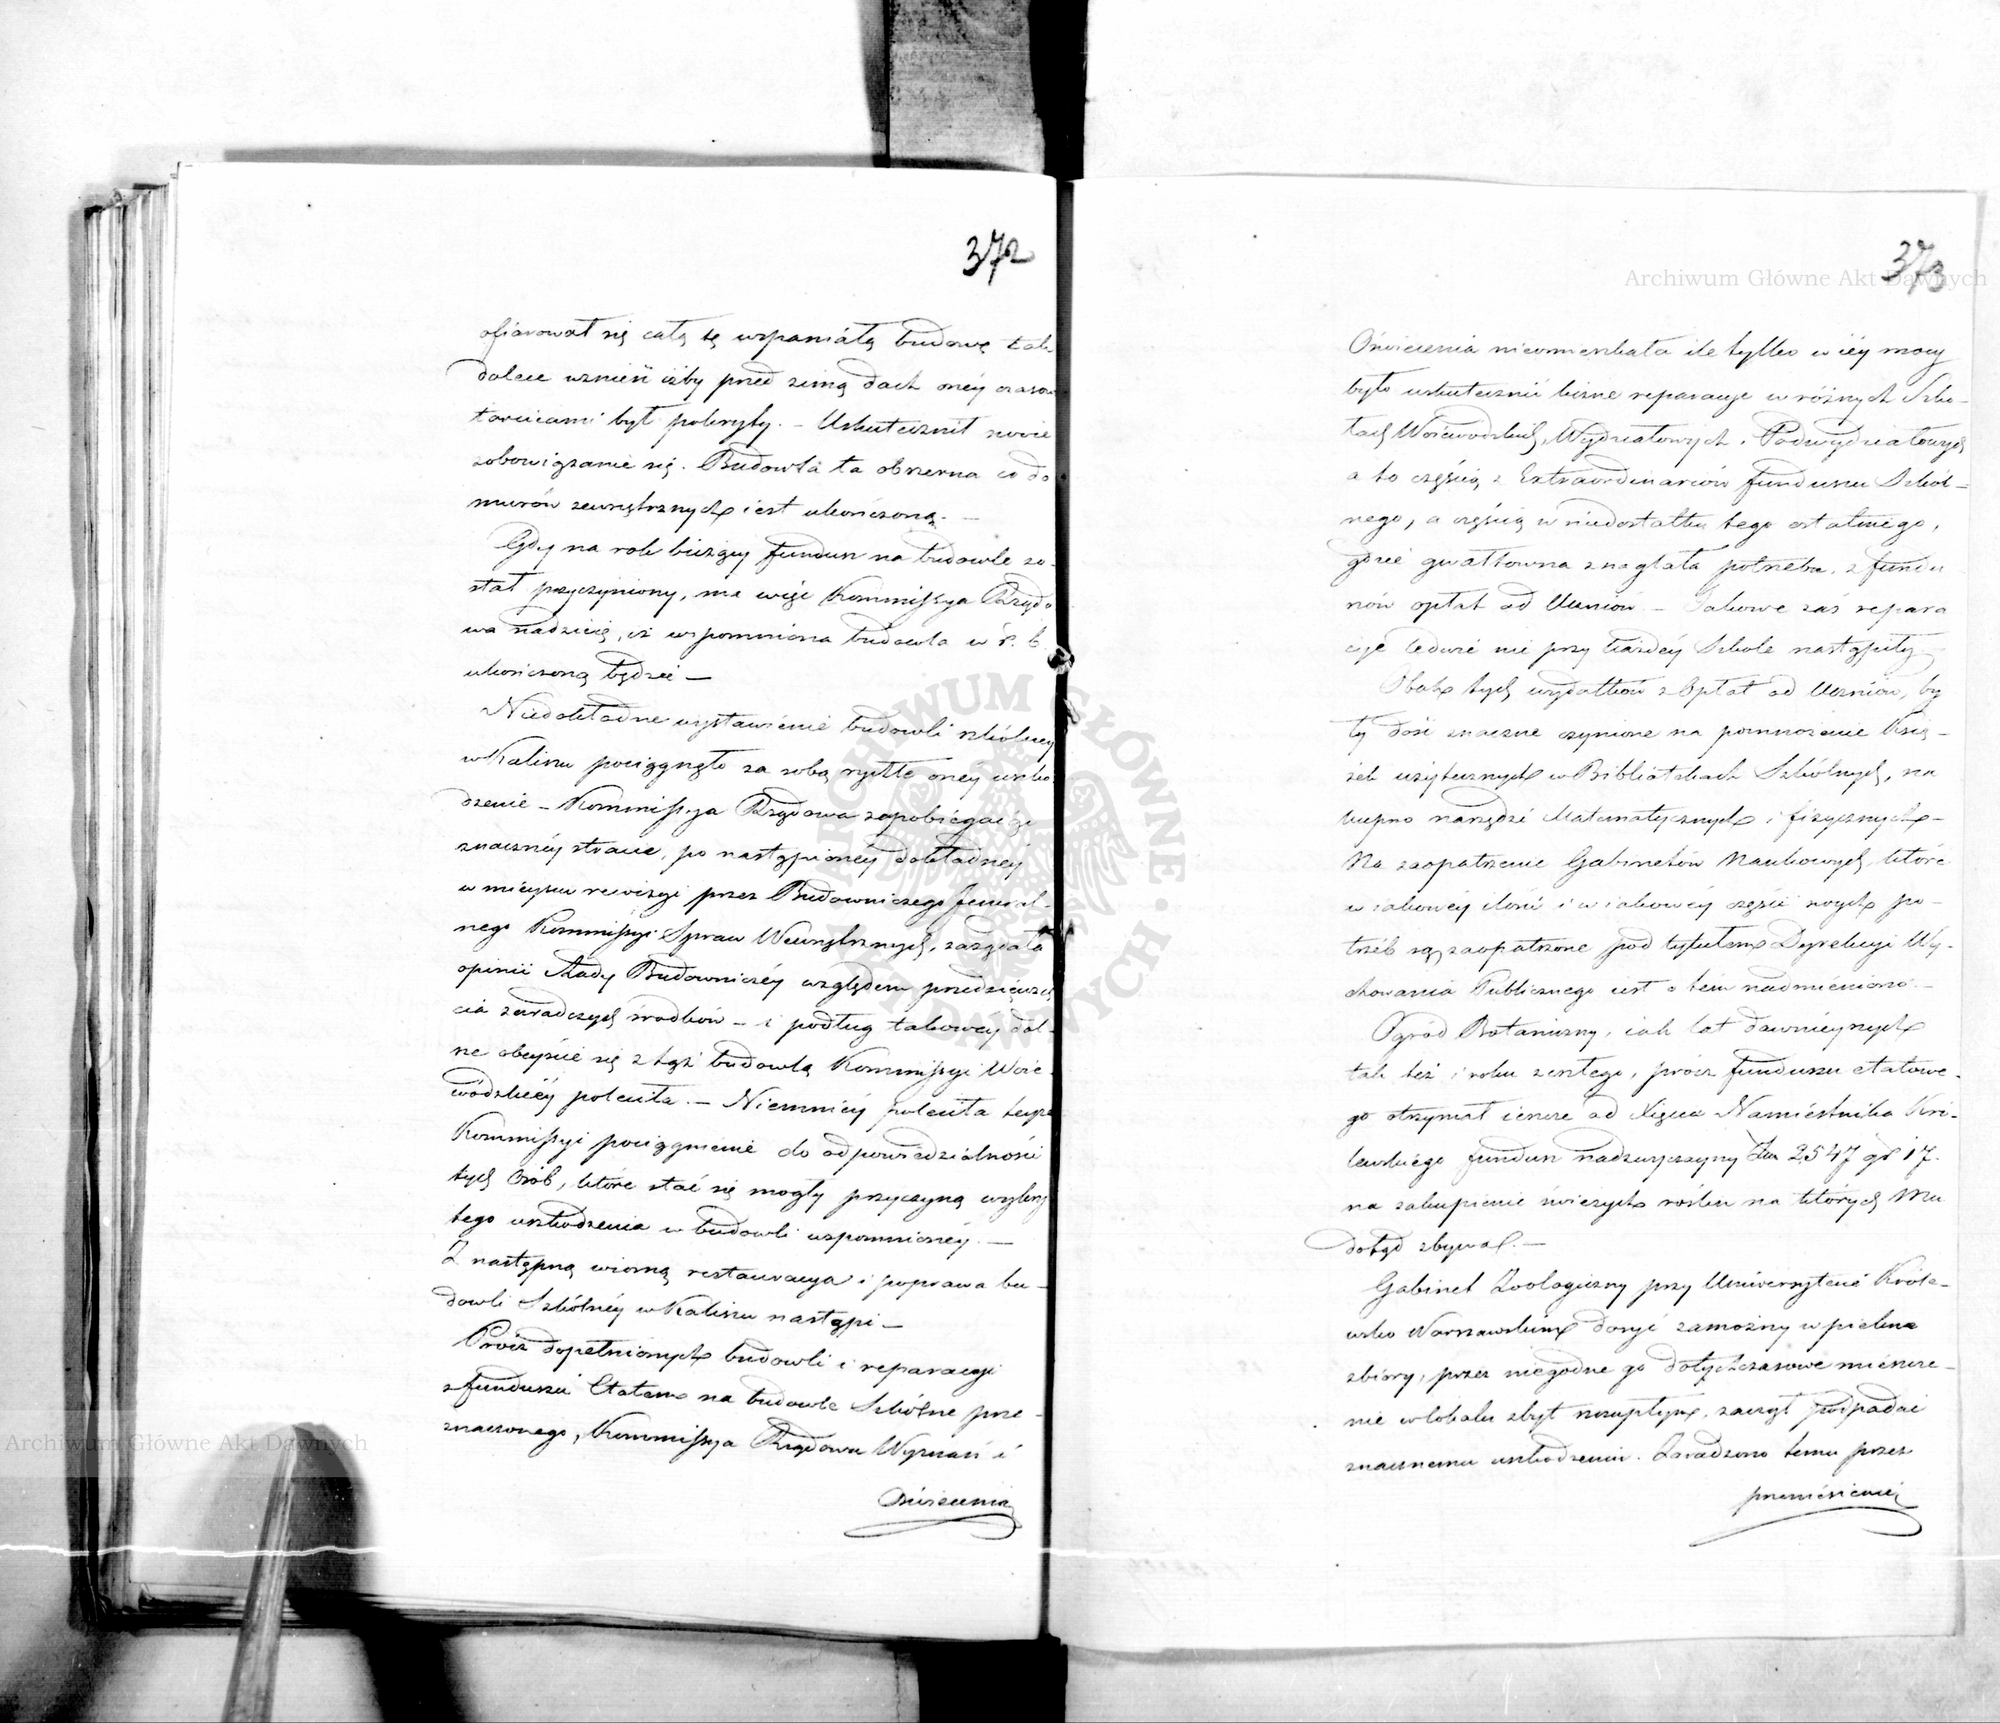 372
ofiarował się całą tę wspaniałą budowę tak
dalece wznieść iżby przed zimą dach onéy czasow
tarcicami był pokryty. – Uskutecznił swoie
zobowiązanie się. Budowla ta obszerna co do
murów zewnętrznych iest ukończoną. –
Gdy na rok bieżący fundusz na budowle zo-
stał przyczyniony, ma więc Kommissya Rządo
wa nadzieię, iż wspomniona budowla w r. b.
ukończoną będzie –
Niedokładne wystawienie budowli szkólney
w Kaliszu pociągnęło za sobą rychłe onéy uszko
dzenie – Kommissya Rządowa zapobiegaiąc
znacznéy stracie, po nastąpionéy dokładnéy
w mieyscu rewizyi przez Budowniczego Jeneral-
nego Kommissyi Spraw Wewnętrznych, zażądała
opinii Rady Budowniczéy względem przedsięwzię
cia zaradczych środków – i podług takowey dal-
sze obeyście się z tąż budowlą Kommissyi Woie-
wódzkiéy poleciła. – Niemniéy poleciła teyże
Kommissyi pociągnienie do odpowiedzialności
tych osób, które stać się mogły przyczyną wczes
tego uszkodzenia w budowli wspomnionéy. –
Z następną wiosną restauracya i poprawa bu-
dowli Szkólnéy w Kaliszu nastąpi –
Prócz dopełnionych budowli i reparacyi
z funduszu Etatem na budowle Szkólne prze-
znaczonego, Kommissya Rządowa Wyznań i
Oświecenia
373
Oświecenia nieomieszkała ile tylko w iéy mocy
było uskutecznić liczne reparacye w różnych Szko-
łach Woiewodzkich, Wydziałowych i Podwydziałowych
a to częścią z Extraordinariów funduszu Szkól-
nego, a częścią w niedostatku tego ostatniego,
gdzie gwałtowna znaglała potrzeba, z fundu
szów opłat od Uczniów – Takowe zaś repara
cye ledwie nie przy każdéy Szkole nastąpiły
Obok tych wydatków z Opłat od Uczniów, by
ły dość znaczne czynione na pomnożenie Ksią-
żek użytecznych w Bibliotekach Szkólnych, na
kupno narzędzi Matematycznych i fizycznych –
Na zaopatrzenie Gabinetów Naukowych, które
w iakowéy ilości i w iakowéy części swych po-
trzeb są zaopatrzone pod tytułem Dyrekcyi Wy-
chowania Publicznego iest o tem nadmieniono. –
Ogród Botaniczny, iak lat dawnieyszych
tak też i roku zeszłego, prócz funduszu etatowe-
go otrzymał ieszcze od Xięcia Namiestnika Kró-
lewskiego fundusz nadzwyczayny Złp 2547 gr 17.
na zakupienie świeżych roślin na których Mu
dotąd zbywało. –
Gabinet Zoologiczny przy Uniwersytecie Króle-
wsko Warszawskim dosyć zamożny w piękne
zbiory, przez niegodne go dotychczasowe mieszcze-
nie w lokalu zbyt szczupłym, zaczął podpadać
znacznemu uszkodzeniu. Zaradzono temu przez
przeniesienie
Archiwum Główne Akt Dawnych
Archiwum Główne Akt Dawnych
ARCHIWUM GŁÓWNE AKT DAWNYCH